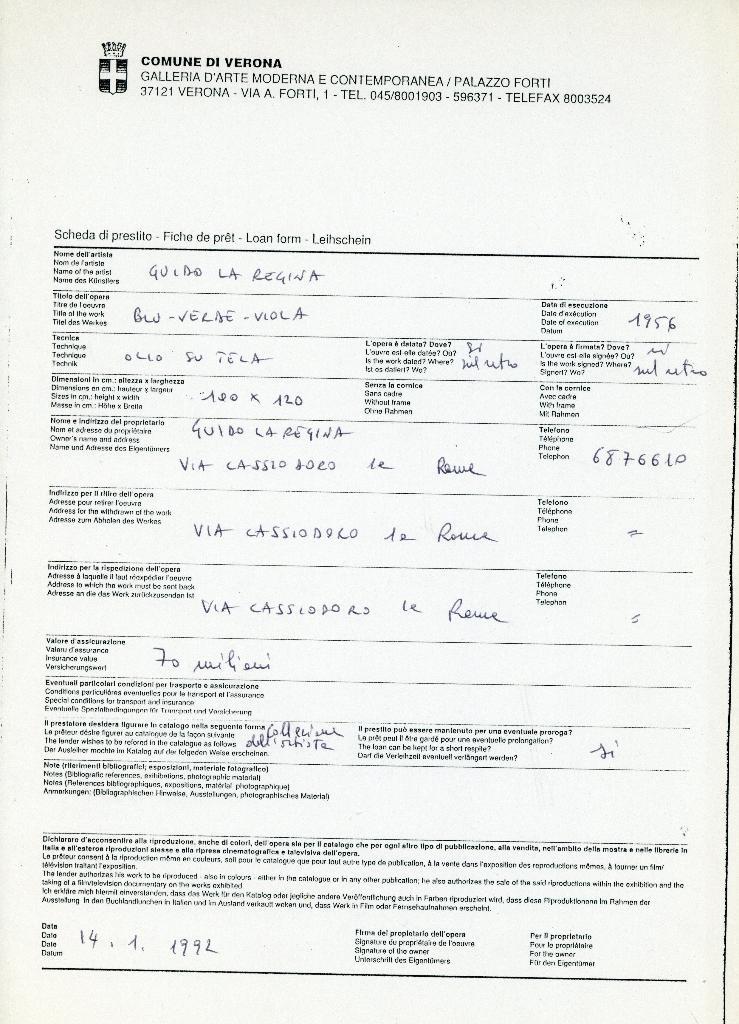 COMUNE DI VERONA
GALLERIA D'ARTE MODERNA E CONTEMPORANEA / PALAZZO FORTI
37121 VERONA - VIA A. FORTI, 1 - TEL. 045/8001903 - 596371 - TELEFAX 8003524
Scheda di prestito - Fiche de prêt - Loan form - Leihschein
Nome dell'artista
Nom de l'artiste
Name of the artist
Name des Künstlers
GUIDO LA REGINA
Titolo dell'opera
Titre de l'oeuvre
Title of the work
Titel des Werkes
BLU-VERDE-VIOLA
Data di esecuzione
Date d'exécution
Date of execution
Datum
1956
Tecnica
Technique
Technique
Technik
OLIO SU TELA
L'opera è datata? Dove?
L'ouvre est-elle datée? Où?
Is the work dated? Where?
Ist es datiert? Wo?
Si
sul retro
L'opera è firmata? Dove?
L'ouvre est-elle signée? Où?
Is the work signed? Where?
Signiert? Wo?
si
sul retro
Dimensioni in cm.: altezza x larghezza
Dimensions en cm.: hauteur x largeur
Sizes in cm.: height x width
Masse in cm.: Höhe x Breite
100 X 120
Senza la cornice
Sans cadre
Without frame
Ohne Rahmen
Con la cornice
Avec cadre
With frame
Mit Rahmen
Nome e indirizzo del proprietario
Nom et adresse du propriétaire
Owner's name and address
Name und Adresse des Eigentümers
GUIDO LA REGINA
VIA CASSIODORO 1a Roma
Telefono
Téléphone
Phone
Telephon
6876610
Indirizzo per il ritiro dell'opera
Adresse pour retirer l'oeuvre
Address for the withdrawn of the work
Adresse zum Abholen des Werkes
VIA CASSIODORO 1a Roma
Telefono
Téléphone
Phone
Telephon
=
Indirizzo per la rispedizione dell'opera
Adresse à laquelle il faut réexpédier l'oeuvre
Address to which the work must be sent back
Adresse an die das Werk zurückzusenden ist
VIA CASSIODORO 1a Roma
Telefono
Téléphone
Phone
Telephon
=
Valore d'assicurazione
Valeur d'assurance
Insurance value
Versicherungswert
70 milioni
Eventuali particolari condizioni per trasporto e assicurazione
Conditions particulières éventuelles pour le transport et l'assurance
Special conditions for transport and insurance
Eventuelle Spezialbedingungen für Transport und Versicherung
Il prestatore desidera figurare in catalogo nella seguente forma
Le prêteur désire figurer au catalogue de la façon suivante
The lender wishes to be refered in the catalogue as follows
Der Ausleiher mochte im Katalog auf der folgeden Weise erscheinen.
Collezione
dell'artista
Il prestito può essere mantenuto per una eventuale proroga?
Le prêt peut il être gardé pour une éventuelle prolongation?
The loan can be kept for a short respite?
Darf die Verleihzeit eventuell verlängert werden?
Si
Note (riferimenti bibliografici; esposizioni, materiale fotografico)
Notes (Bibliografic references, exhibitions, photographic material)
Notes (References bibliographiques, expositions, matérial photographique)
Anmerkungen: (Bibliographischen Hinweise, Ausstellungen, photographisches Material)
Dichiaro d'acconsentire alla riproduzione, anche di colori, dell'opera sia per il catalogo che per ogni altro tipo di pubblicazione, alla vendita, nell'ambito della mostra e nelle librerie in
Italia e all'estero riproduzioni stesse e alla ripresa cinematografica e televisiva dell'opera.
Le prêteur consent à la riproduction même en couleurs, soit pour le catalogue que pour tout autre type de publication, à la vente dans l'exposition des reproductions mêmes, à tourner un film/
télévision traitant l'exposition.
The lender authorizes his work to be riproduced - also in colours - either in the catalogue or in any other publication; he also authorizes the sale of the said riproductions within the exhibition and the
taking of a film/television documentary on the works exhibited
Ich erkläre mich hiermit einverstanden, dass das Werk für den Katalog oder jegliche andere Veröffentlichung auch in Farben riproduziert wird, dass diese Riproduktionene im Rahmen der
Ausstellung In den Buchlandlunchen in Italien und im Ausland verkauft woken und, dass Werk in Film oder Fernsehaufnahmen erscheint.
Data
Date
Date
Datum
14. 1. 1992
Firma del propietario dell'opera
Signature du propriétaire de l'oeuvre
Signature of the owner
Unterschrift des Eigentümers
Per Il proprietario
Pour le propriétaire
For the owner
Für den Eigentümer